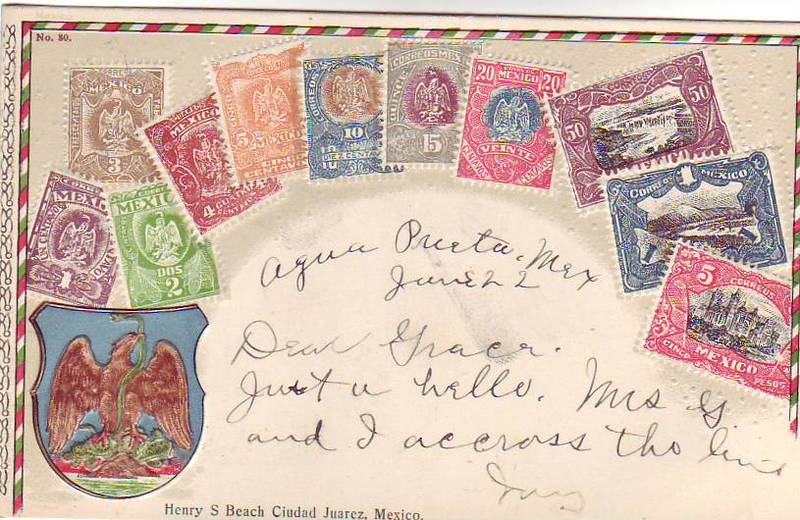 No. 80.
3
MEXICO
4
MEXICO
CENTAVOS
5
MEXICO
CORREOS
10
CORREOS MEX
15
20
MEXICO
20
VEINTE
CENTAVOS
CENTAVOS
50
50
CORREOS MEXICO
1
1
1
5
CORREOS
MEXICO
CINCO
PESOS
1
MEXIC
DOS
2
Agua Prieta. Mex
June 22
Dear Grace.
Just a hello. Mrs G
and I accross the line
Henry S Beach Ciudad Juarez, Mexico.